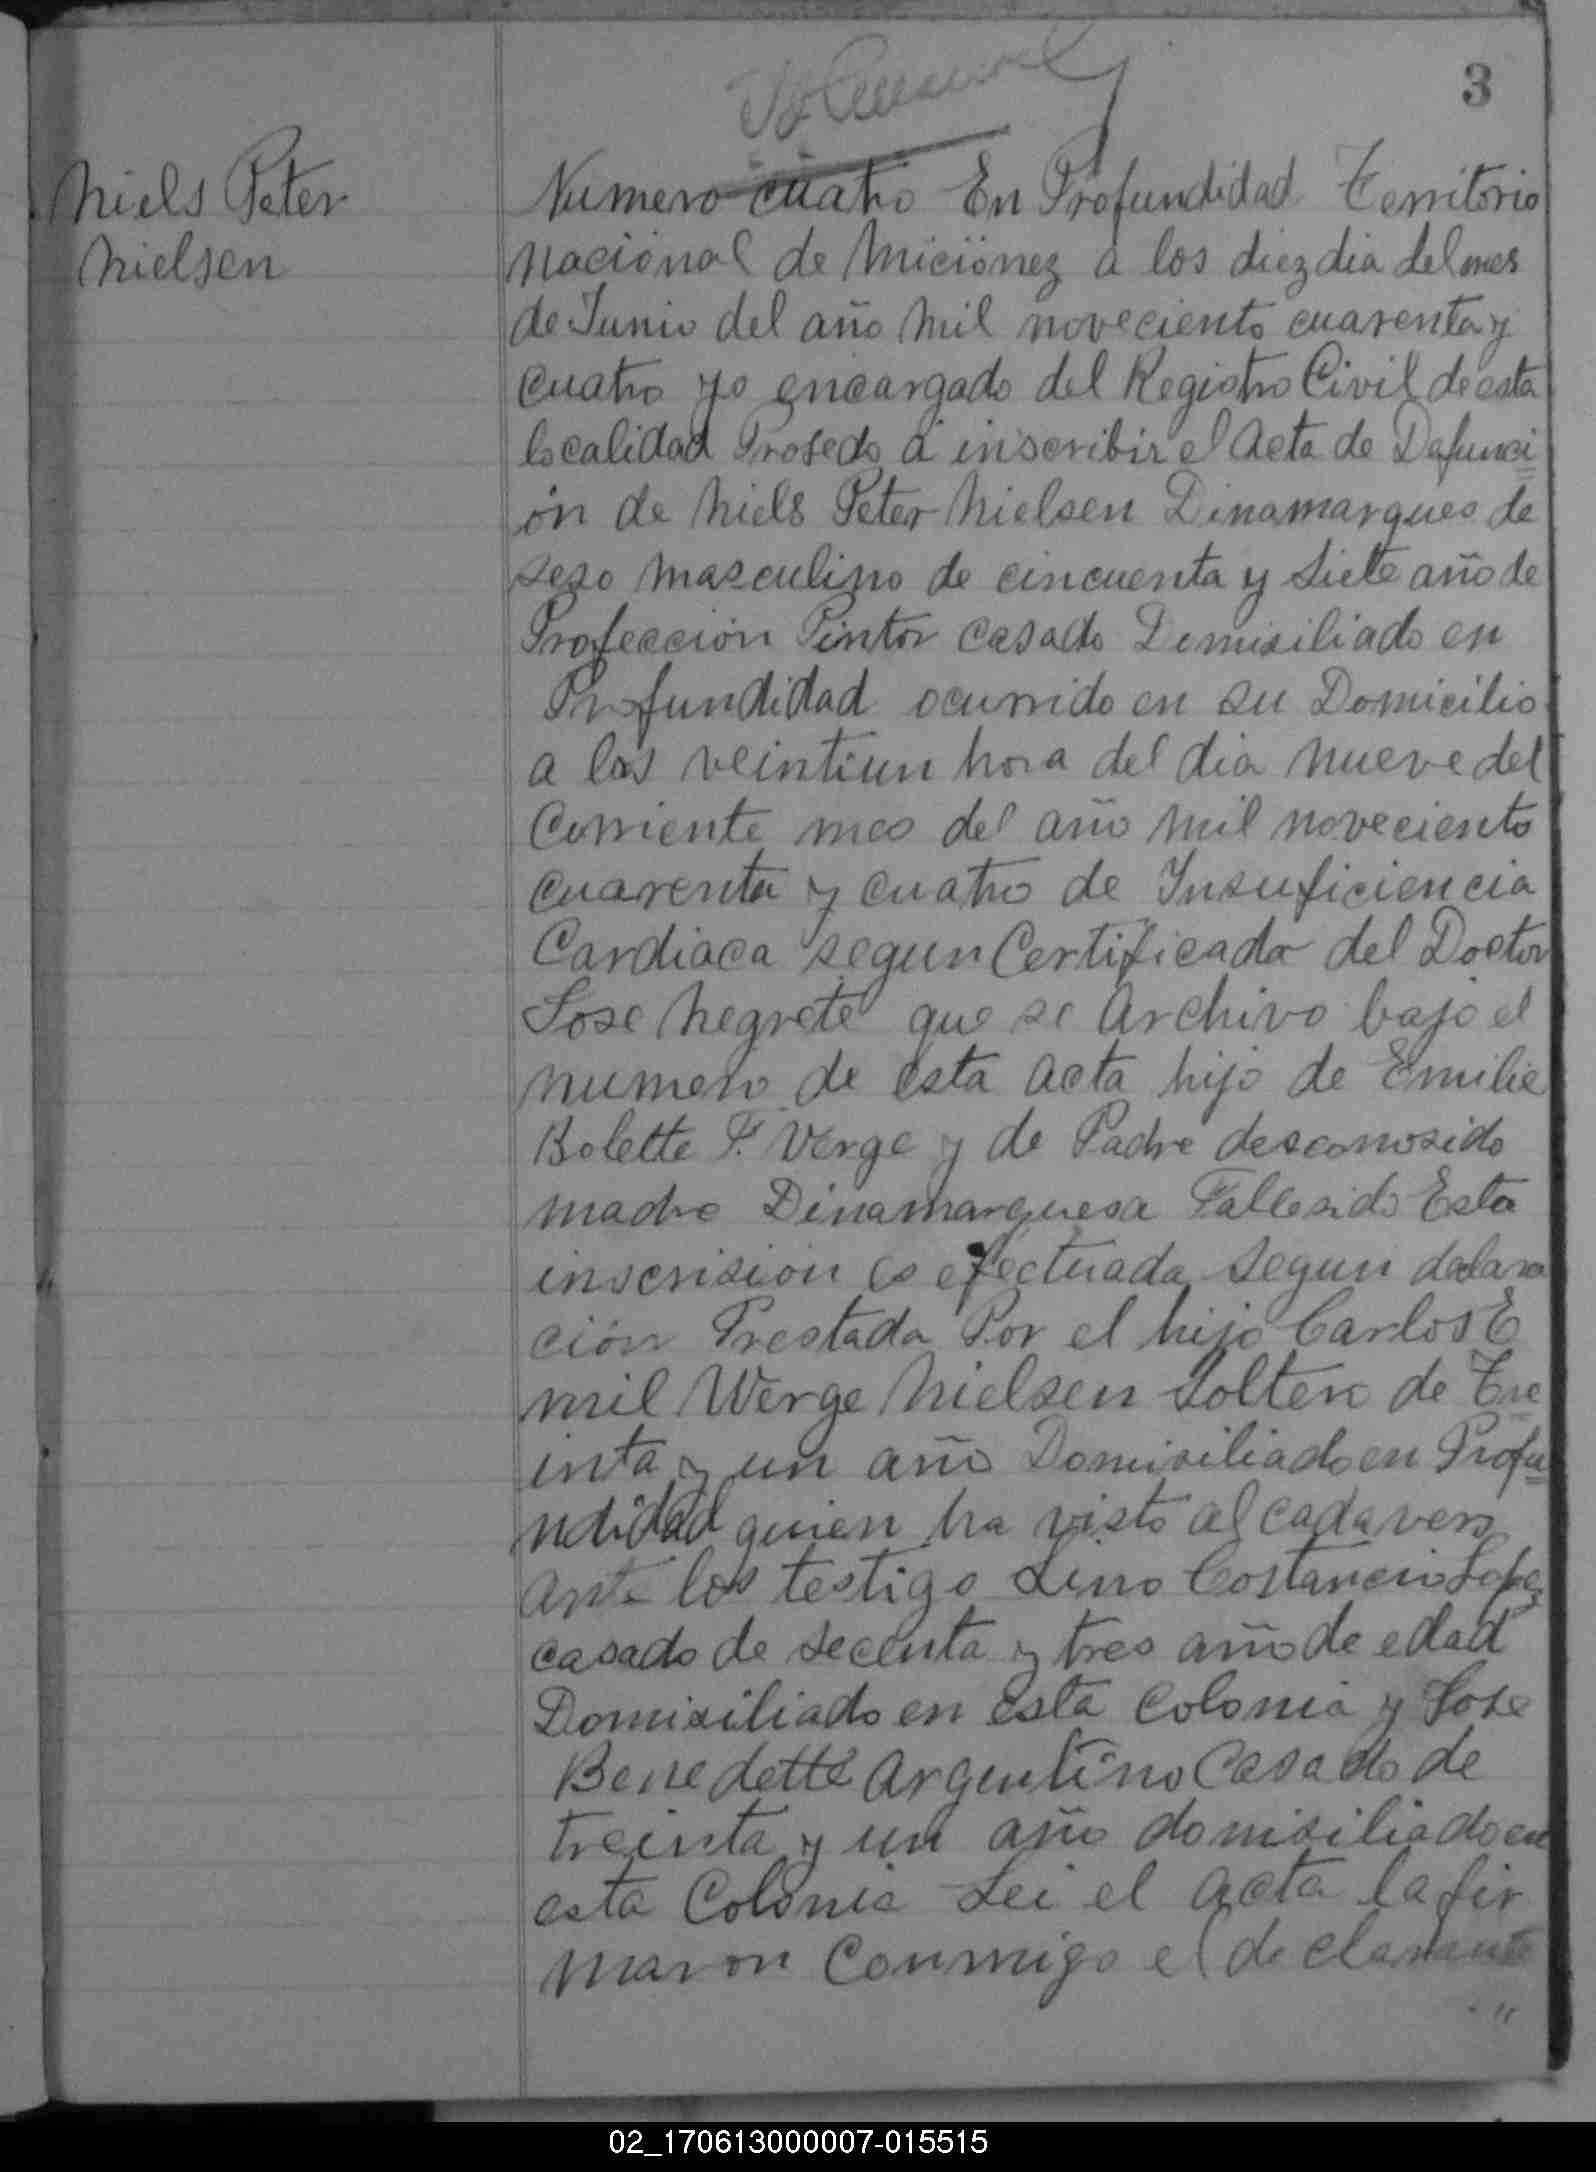 3
Niels Peter
Nielsen
Numero cuatro En Profundidad Territorio
Nacional de Miciónez a los diez dia del mes
de Junio del año Mil noveciento cuarenta y
cuatro yo encargado del Registro Civil de esta
localidad Prosedo a inscribir el acta de Defunci
ón de Niels Peter Nielsen Dinamarques de
sexo masculino de cincuenta y siete año de
Profección Pintor casado Domisiliado en
Profundidad ocurrido en su Domicilio
a las veintiun hora del dia nueve del
corriente mes del año mil noveciento
cuarenta y cuatro de Insuficiencia
Cardiaca segun Certificado del Doctor
Jose Negrete que se archivo bajo el
numero de esta acta hijo de Emilie
Bolette F. Verge y de Padre desconosido
madre Dinamarquesa Fallesido Esta
inscrision es efectuada segun dalara
ción Prestada Por el hijo Carlos E
mil Werge Nielsen soltero de Tre
inta y un año Domisiliado en Profu
ndidad quien ha visto al cadavers
ante los testigo Lino Costancio Lopez
casado de secenta y tres año de edad
Domisiliado en esta colonia y Jose
Benedette Argentino Casado de
treinta y un año domisiliado en
esta Colonia Lei el acta la fir
maron conmigo el declarante
02_170613000007-015515